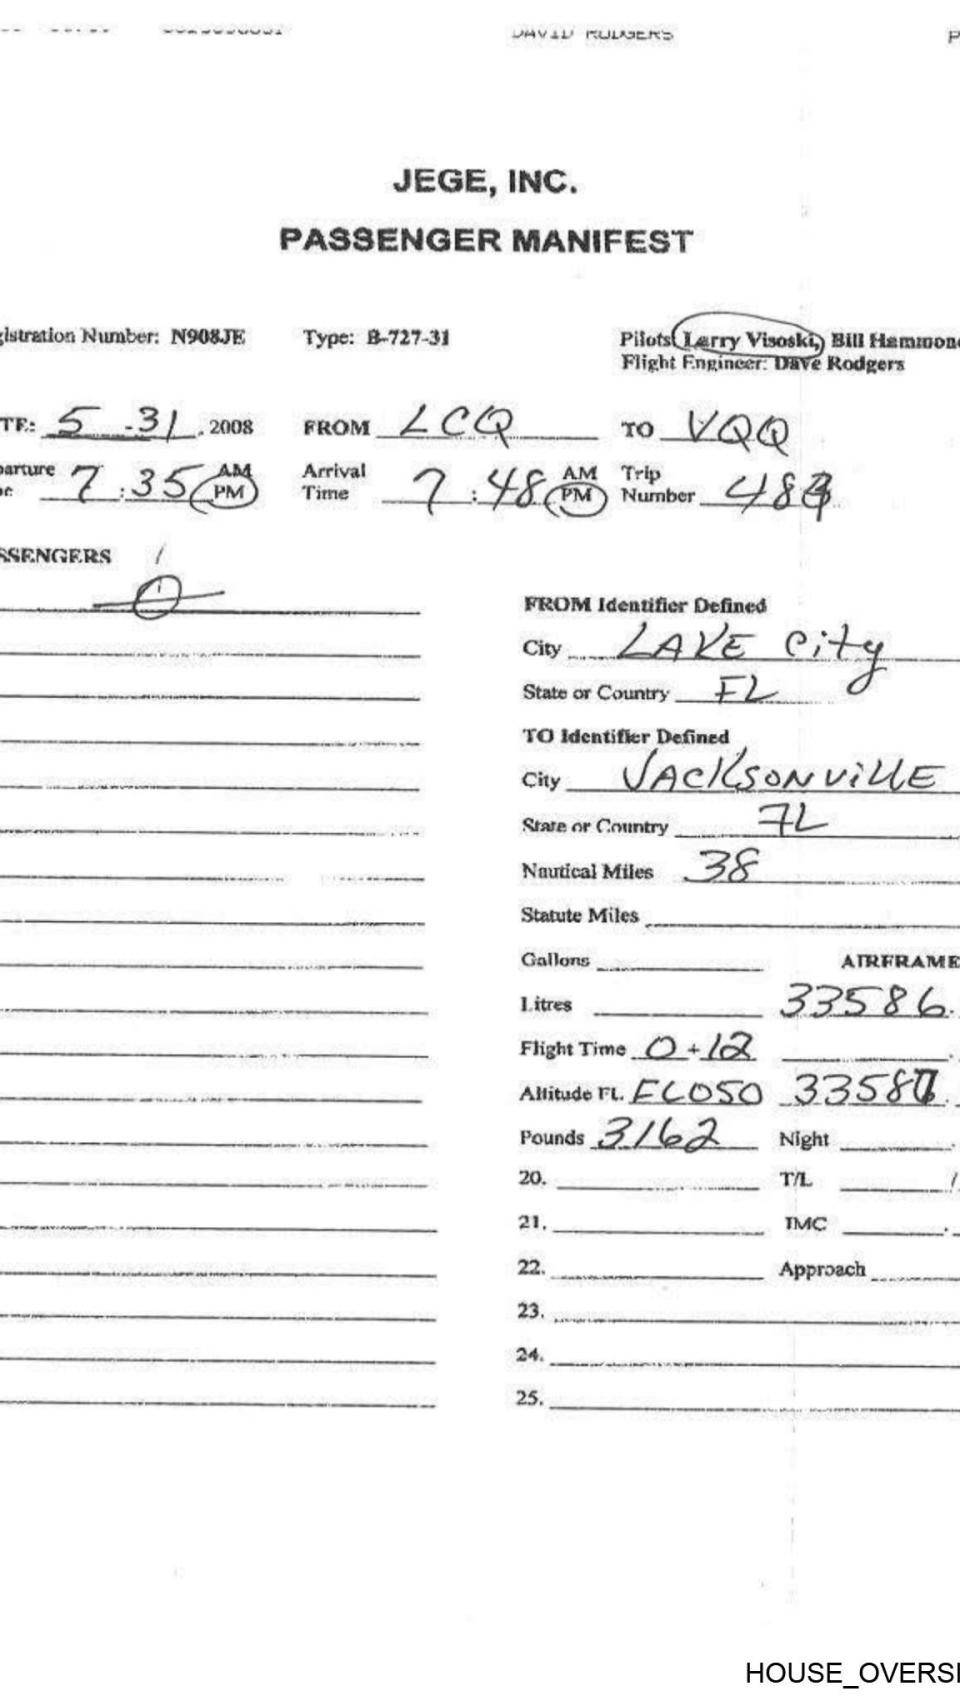 DAVID RODGERS
JEGE, INC.
PASSENGER MANIFEST
gistration Number: N908JE Type: B-727-31 Pilots: Larry Visoski, Bill Hammon
Flight Engineer: Dave Rodgers
TE: 5-31, 2008 FROM LCQ TO VQQ
parture 7:35 AM PM Arrival Time 7:48 AM PM Trip Number
SSENGERS
0
FROM Identifier Defined
City LAKE City
State or Country FL
TO Identifier Defined
City JACKSONVILLE
State or Country FL
Nautical Miles 38
Statute Miles
Gallons AIRFRAME
Litres 33586.
Flight Time 0+12
Altitude Ft. FL050 3358
Pounds 3162 Night
20. T/L
21. IMC
22. Approach
23.
24.
25.
HOUSE_OVERSI